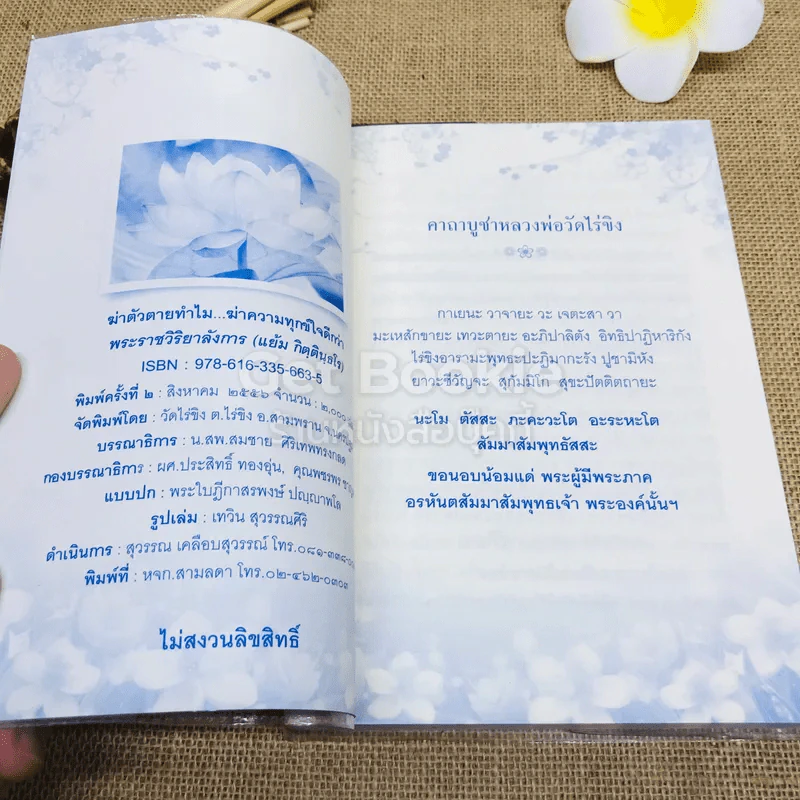 ฆ่าตัวตายทำไม...ฆ่าความทุกข์ใจดีกว่า
พระราชวิริยาลังการ (แย้ม กิตฺตินฺธโร)
ISBN : 978-616-335-663-5
พิมพ์ครั้งที่ ๒ : สิงหาคม ๒๕๕๖ จำนวน : ๒,๐๐๐
จัดพิมพ์โดย : วัดไร่ขิง ต.ไร่ขิง อ.สามพราน
บรรณาธิการ : น.สพ.สมชาย ศิริเทพทรงกลด
กองบรรณาธิการ : ผศ.ประสิทธิ์ ทองอุ่น, คุณพชรพร
แบบปก : พระใบฎีกาสรพงษ์ ปญฺญาพโล
รูปเล่ม : เทวิน สุวรรณศิริ
ดำเนินการ : สุวรรณ เคลือบสุวรรณ์ โทร.๐๘๑-๓๓๘-
พิมพ์ที่ : หจก.สามลดา โทร.๐๒-๔๖๒-๐๓๐๓
ไม่สงวนลิขสิทธิ์
คาถาบูชาหลวงพ่อวัดไร่ขิง
กาเยนะ วาจายะ วะ เจตะสา วา
มะเหสักขายะ เทวะตายะ อะภิปาลิตัง อิทธิปาฏิหาริกัง
ไร่ขิงอารามะพุทธะปะฏิมากะรัง ปูชามิหัง
ยาวะชีวัญจะ สุกัมมิโก สุขะปัตติตถายะ
นะโม ตัสสะ ภะคะวะโต อะระหะโต
สัมมาสัมพุทธัสสะ
ขอนอบน้อมแด่ พระผู้มีพระภาค
อรหันตสัมมาสัมพุทธเจ้า พระองค์นั้นฯ
Get Bookie
ร้านหนังสือบุ๊คกี้